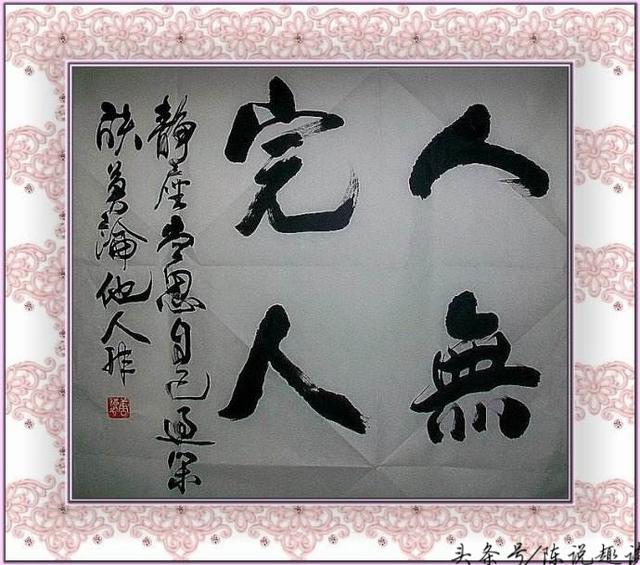 人無
完人
靜座常思自己過深
談莫論他人非
头条号/陈说趣